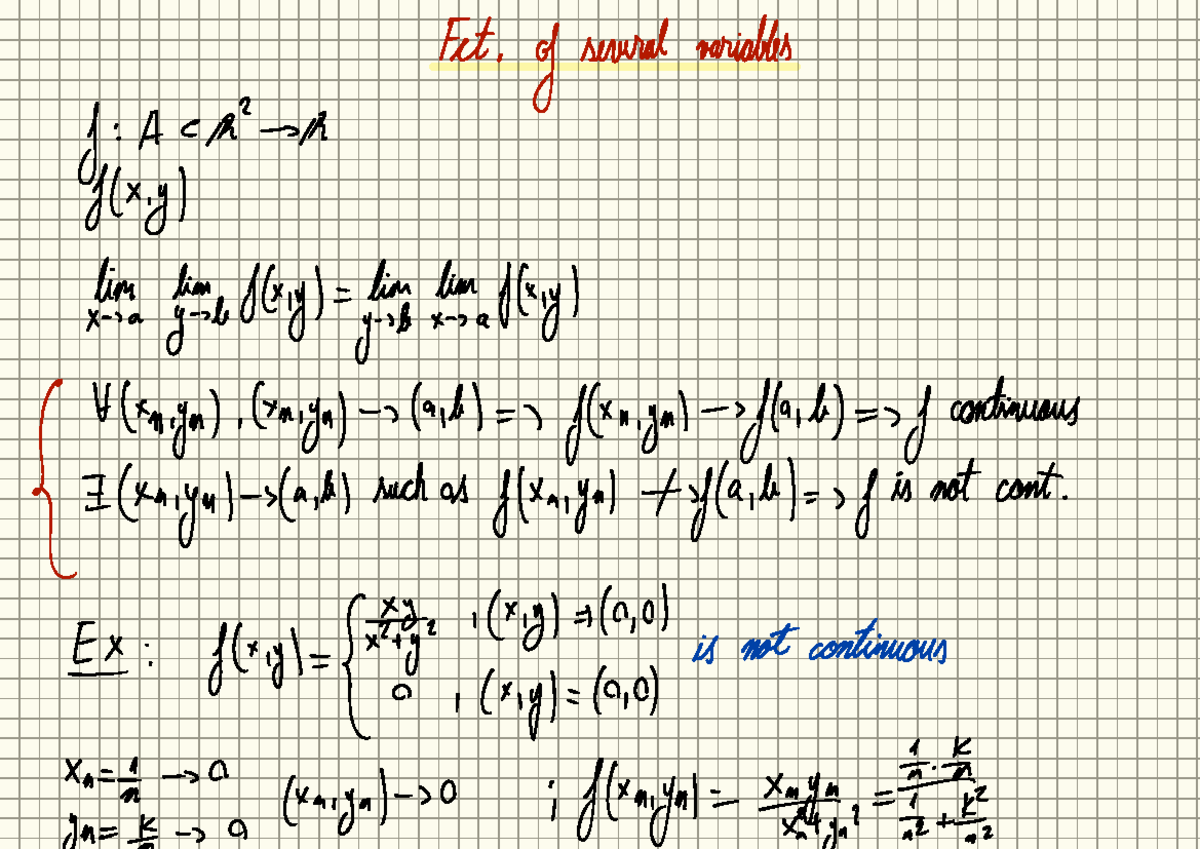 Fct. of several variables
f : A ⊂ ℝ² → ℝ
f(x,y)
lim x→a lim y→b f(x,y) = lim y→b lim x→a f(x,y)
∀ (xₙ,yₙ), (xₙ,yₙ) → (a,b) => f(xₙ,yₙ) → f(a,b) => f continuous
∃ (xₙ,yₙ) → (a,b) such as f(xₙ,yₙ) ↛ f(a,b) => f is not cont.
Ex: f(x,y) = { xy/(x²+y²) , (x,y) ≠ (0,0)
0 , (x,y) = (0,0)
is not continuous
xₙ = 1/n → 0
yₙ = k/n → 0
(xₙ,yₙ) → 0 ; f(xₙ,yₙ) = xₙyₙ/(xₙ²+yₙ²) = (1/n · k/n)/(1/n² + k²/n²)